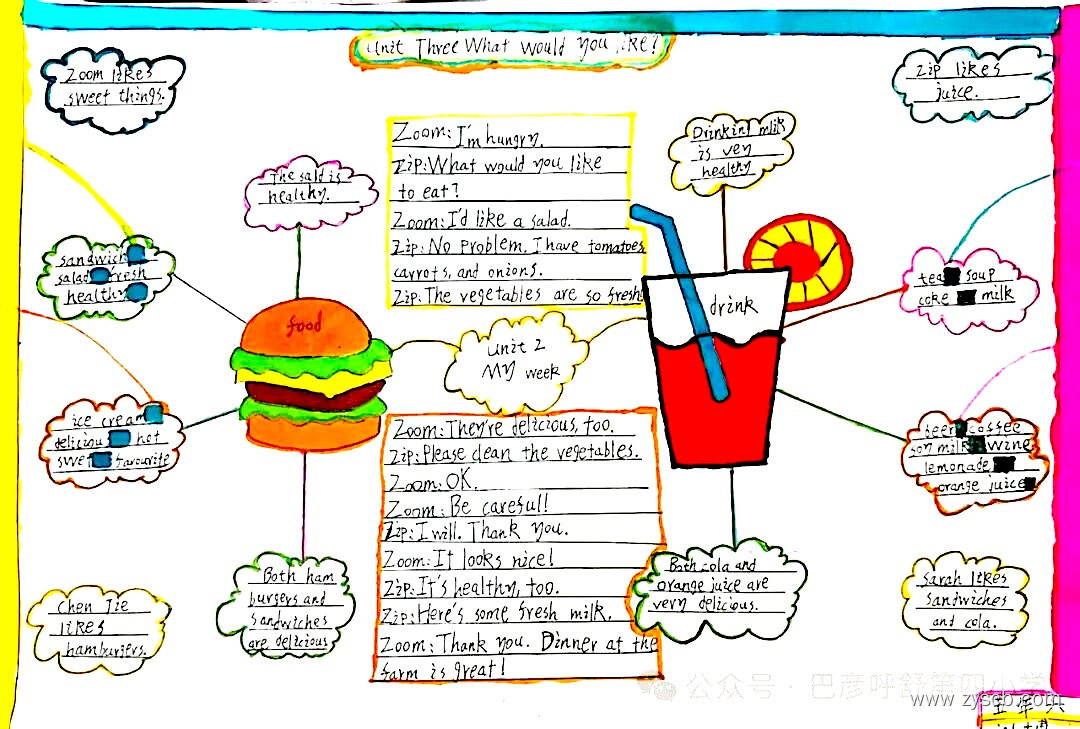 Unit Three What would you like?
Zoom likes
sweet things.
Zip likes
juice.
The sald is
healthy.
Zoom: I'm hungry.
Zip: What would you like
to eat?
Zoom: I'd like a salad.
Zip: No problem. I have tomatoes,
carrots, and onions.
Zip: The vegetables are so fresh!
Drinking mlik
is very
healthy
sandwich
salad fresh
healthy
food
drink
tea soup
coke milk
Unit 2
My week
ice cream
delicious hot
sweet favourite
Zoom: They're delicious, too.
Zip: Please clean the vegetables.
Zoom: OK.
Zoom: Be careful!
Zip: I will. Thank you.
Zoom: It looks nice!
Zip: It's healthy, too.
Zip: Here's some fresh milk.
Zoom: Thank you. Dinner at the
farm is great!
beer coffee
soy milk wine
lemonade
orange juice
Chen Jie
likes
hamburgers.
Both ham
burgers and
sandwiches
are delicious
Both cola and
orange juice are
very delicious.
Sarah likes
sandwiches
and cola.
公众号·巴彦呼舒第四小学
www.zyscb.com
五年六